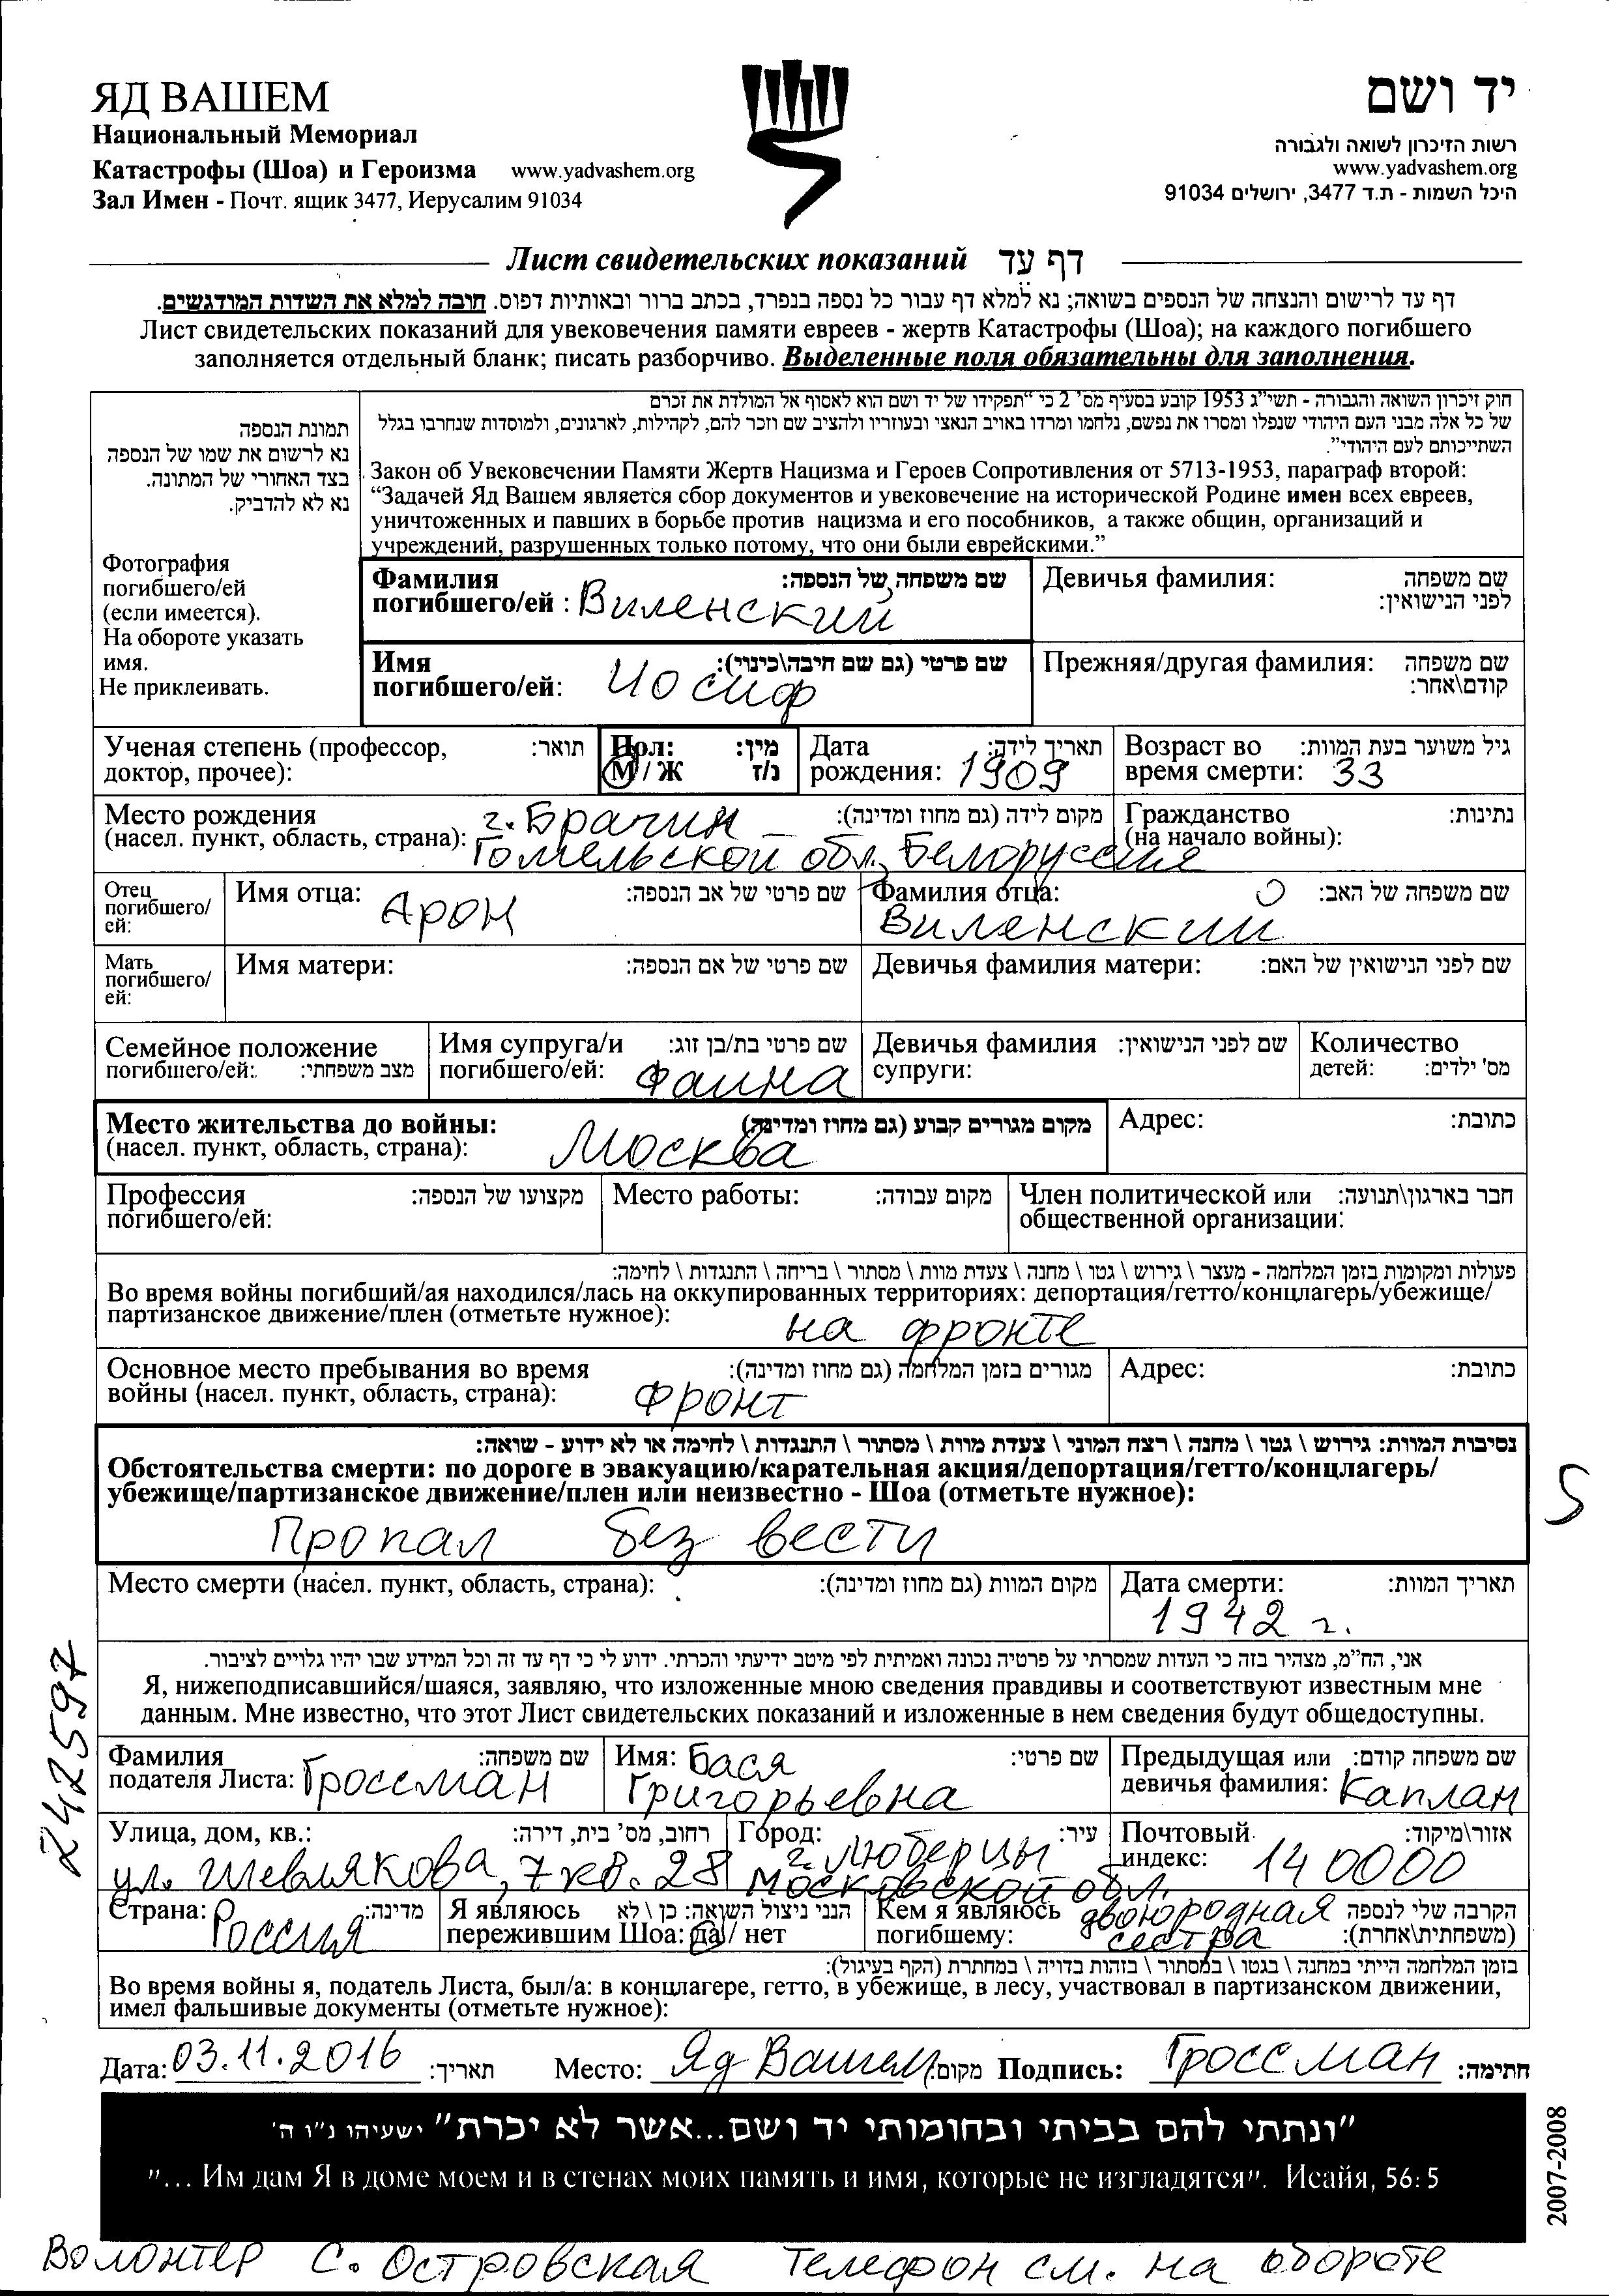 ЯД ВАШЕМ
יד ושם
Национальный Мемориал
Катастрофы (Шоа) и Героизма www.yadvashem.org
Зал Имен - Почт. ящик 3477, Иерусалим 91034
רשות הזיכרון לשואה ולגבורה
www.yadvashem.org
היכל השמות - ת.ד 3477, ירושלים 91034
Лист свидетельских показаний דף עד
דף עד לרישום והנצחה של הנספים בשואה; נא למלא דף עבור כל נספה בנפרד, בכתב ברור ובאותיות דפוס. חובה למלא את השדות המודגשים.
Лист свидетельских показаний для увековечения памяти евреев - жертв Катастрофы (Шоа); на каждого погибшего
заполняется отдельный бланк; писать разборчиво. Выделенные поля обязательны для заполнения.
תמונת הנספה
נא לרשום את שמו של הנספה
בצד האחורי של המתונה.
נא לא להדביק.
Фотография
погибшего/ей
(если имеется).
На обороте указать
имя.
Не приклеивать.
חוק זיכרון השואה והגבורה - תשי"ג 1953 קובע בסעיף מס' 2 כי "תפקידו של יד ושם הוא לאסוף אל המולדת את זכרם
של כל אלה מבני העם היהודי שנפלו ומסרו את נפשם, נלחמו ומרדו באויב הנאצי ובעוזריו ולהציב שם וזכר להם, לקהילות, לארגונים, ולמוסדות שנחרבו בגלל
השתייכותם לעם היהודי".
Закон об Увековечении Памяти Жертв Нацизма и Героев Сопротивления от 5713-1953, параграф второй:
"Задачей Яд Вашем является сбор документов и увековечение на исторической Родине имен всех евреев,
уничтоженных и павших в борьбе против нацизма и его пособников, а также общин, организаций и
учреждений, разрушенных только потому, что они были еврейскими."
Фамилия שם משפחה של הנספה:
погибшего/ей : Виленский
Девичья фамилия: שם משפחה
לפני הנישואין:
Имя שם פרטי (גם שם חיבה\כינוי):
погибшего/ей: Иосиф
Прежняя/другая фамилия: שם משפחה
קודם\אחר:
Ученая степень (профессор, תואר:
доктор, прочее):
Пол: מין:
М / Ж ז/נ
Дата תאריך לידה:
рождения: 1909
Возраст во גיל משוער בעת המוות:
время смерти: 33
Место рождения г. Брагин מקום לידה (גם מחוז ומדינה):
(насел. пункт, область, страна): Гомельской обл, Белоруссия
Гражданство נתינות:
(на начало войны):
Отец
погибшего/
ей:
Имя отца: Арон שם פרטי של אב הנספה:
Фамилия отца: שם משפחה של האב:
Виленский
Мать
погибшего/
ей:
Имя матери: שם פרטי של אם הנספה:
Девичья фамилия матери: שם לפני הנישואין של האם:
Семейное положение
погибшего/ей: מצב משפחתי:
Имя супруга/и שם פרטי בת/בן זוג:
погибшего/ей: Фаина
Девичья фамилия שם לפני הנישואין:
супруги:
Количество
детей: מס' ילדים:
Место жительства до войны: מקום מגורים קבוע (גם מחוז ומדינה)
(насел. пункт, область, страна): Москва
Адрес: כתובת:
Профессия מקצועו של הנספה:
погибшего/ей:
Место работы: מקום עבודה:
Член политической или חבר בארגון\תנועה:
общественной организации:
פעולות ומקומות בזמן המלחמה - מעצר \ גירוש \ גטו \ מחנה \ צעדת מוות \ מסתור \ בריחה \ התנגדות \ לחימה:
Во время войны погибший/ая находился/лась на оккупированных территориях: депортация/гетто/концлагерь/убежище/
партизанское движение/плен (отметьте нужное): на фронте
Основное место пребывания во время מגורים בזמן המלחמה (גם מחוז ומדינה):
войны (насел. пункт, область, страна): Фронт
Адрес: כתובת:
נסיבות המוות: גירוש \ גטו \ מחנה \ רצח המוני \ צעדת מוות \ מסתור \ התנגדות \ לחימה או לא ידוע - שואה:
Обстоятельства смерти: по дороге в эвакуацию/карательная акция/депортация/гетто/концлагерь/
убежище/партизанское движение/плен или неизвестно - Шоа (отметьте нужное):
Пропал без вести
Место смерти (насел. пункт, область, страна): מקום המוות (גם מחוז ומדינה):
Дата смерти: תאריך המוות:
1942 г.
אני, הח"מ, מצהיר בזה כי העדות שמסרתי על פרטיה נכונה ואמיתית לפי מיטב ידיעתי והכרתי. ידוע לי כי דף עד זה וכל המידע שבו יהיו גלויים לציבור.
Я, нижеподписавшийся/шаяся, заявляю, что изложенные мною сведения правдивы и соответствуют известным мне
данным. Мне известно, что этот Лист свидетельских показаний и изложенные в нем сведения будут общедоступны.
242597
Фамилия שם משפחה:
подателя Листа: Гроссман
Имя: Бася שם פרטי:
Григорьевна
Предыдущая или שם משפחה קודם:
девичья фамилия: Каплан
Улица, дом, кв.: רחוב, מס' בית, דירה:
ул. Шевлякова, 7 кв. 28
Город: г. Люберцы עיר:
Московской обл.
Почтовый אזור\מיקוד:
индекс: 140000
Страна: Россия מדינה:
Я являюсь הנני ניצול השואה: כן \ לא
пережившим Шоа: да / нет
Кем я являюсь двоюродная הקרבה שלי לנספה
погибшему: сестра (משפחתית\אחרת):
בזמן המלחמה הייתי במחנה \ בגטו \ במסתור \ בזהות בדויה \ במחתרת (הקף בעיגול):
Во время войны я, податель Листа, был/а: в концлагере, гетто, в убежище, в лесу, участвовал в партизанском движении,
имел фальшивые документы (отметьте нужное):
Дата: 03.11.2016 תאריך: Место: Яд Вашем מקום: Подпись: Гроссман חתימה:
"ונתתי להם בביתי ובחומותי יד ושם...אשר לא יכרת" ישעיהו נ"ו ה'
"... Им дам Я в доме моем и в стенах моих память и имя, которые не изгладятся". Исайя, 56: 5
2007-2008
Волонтер С. Островская Телефон см. на обороте